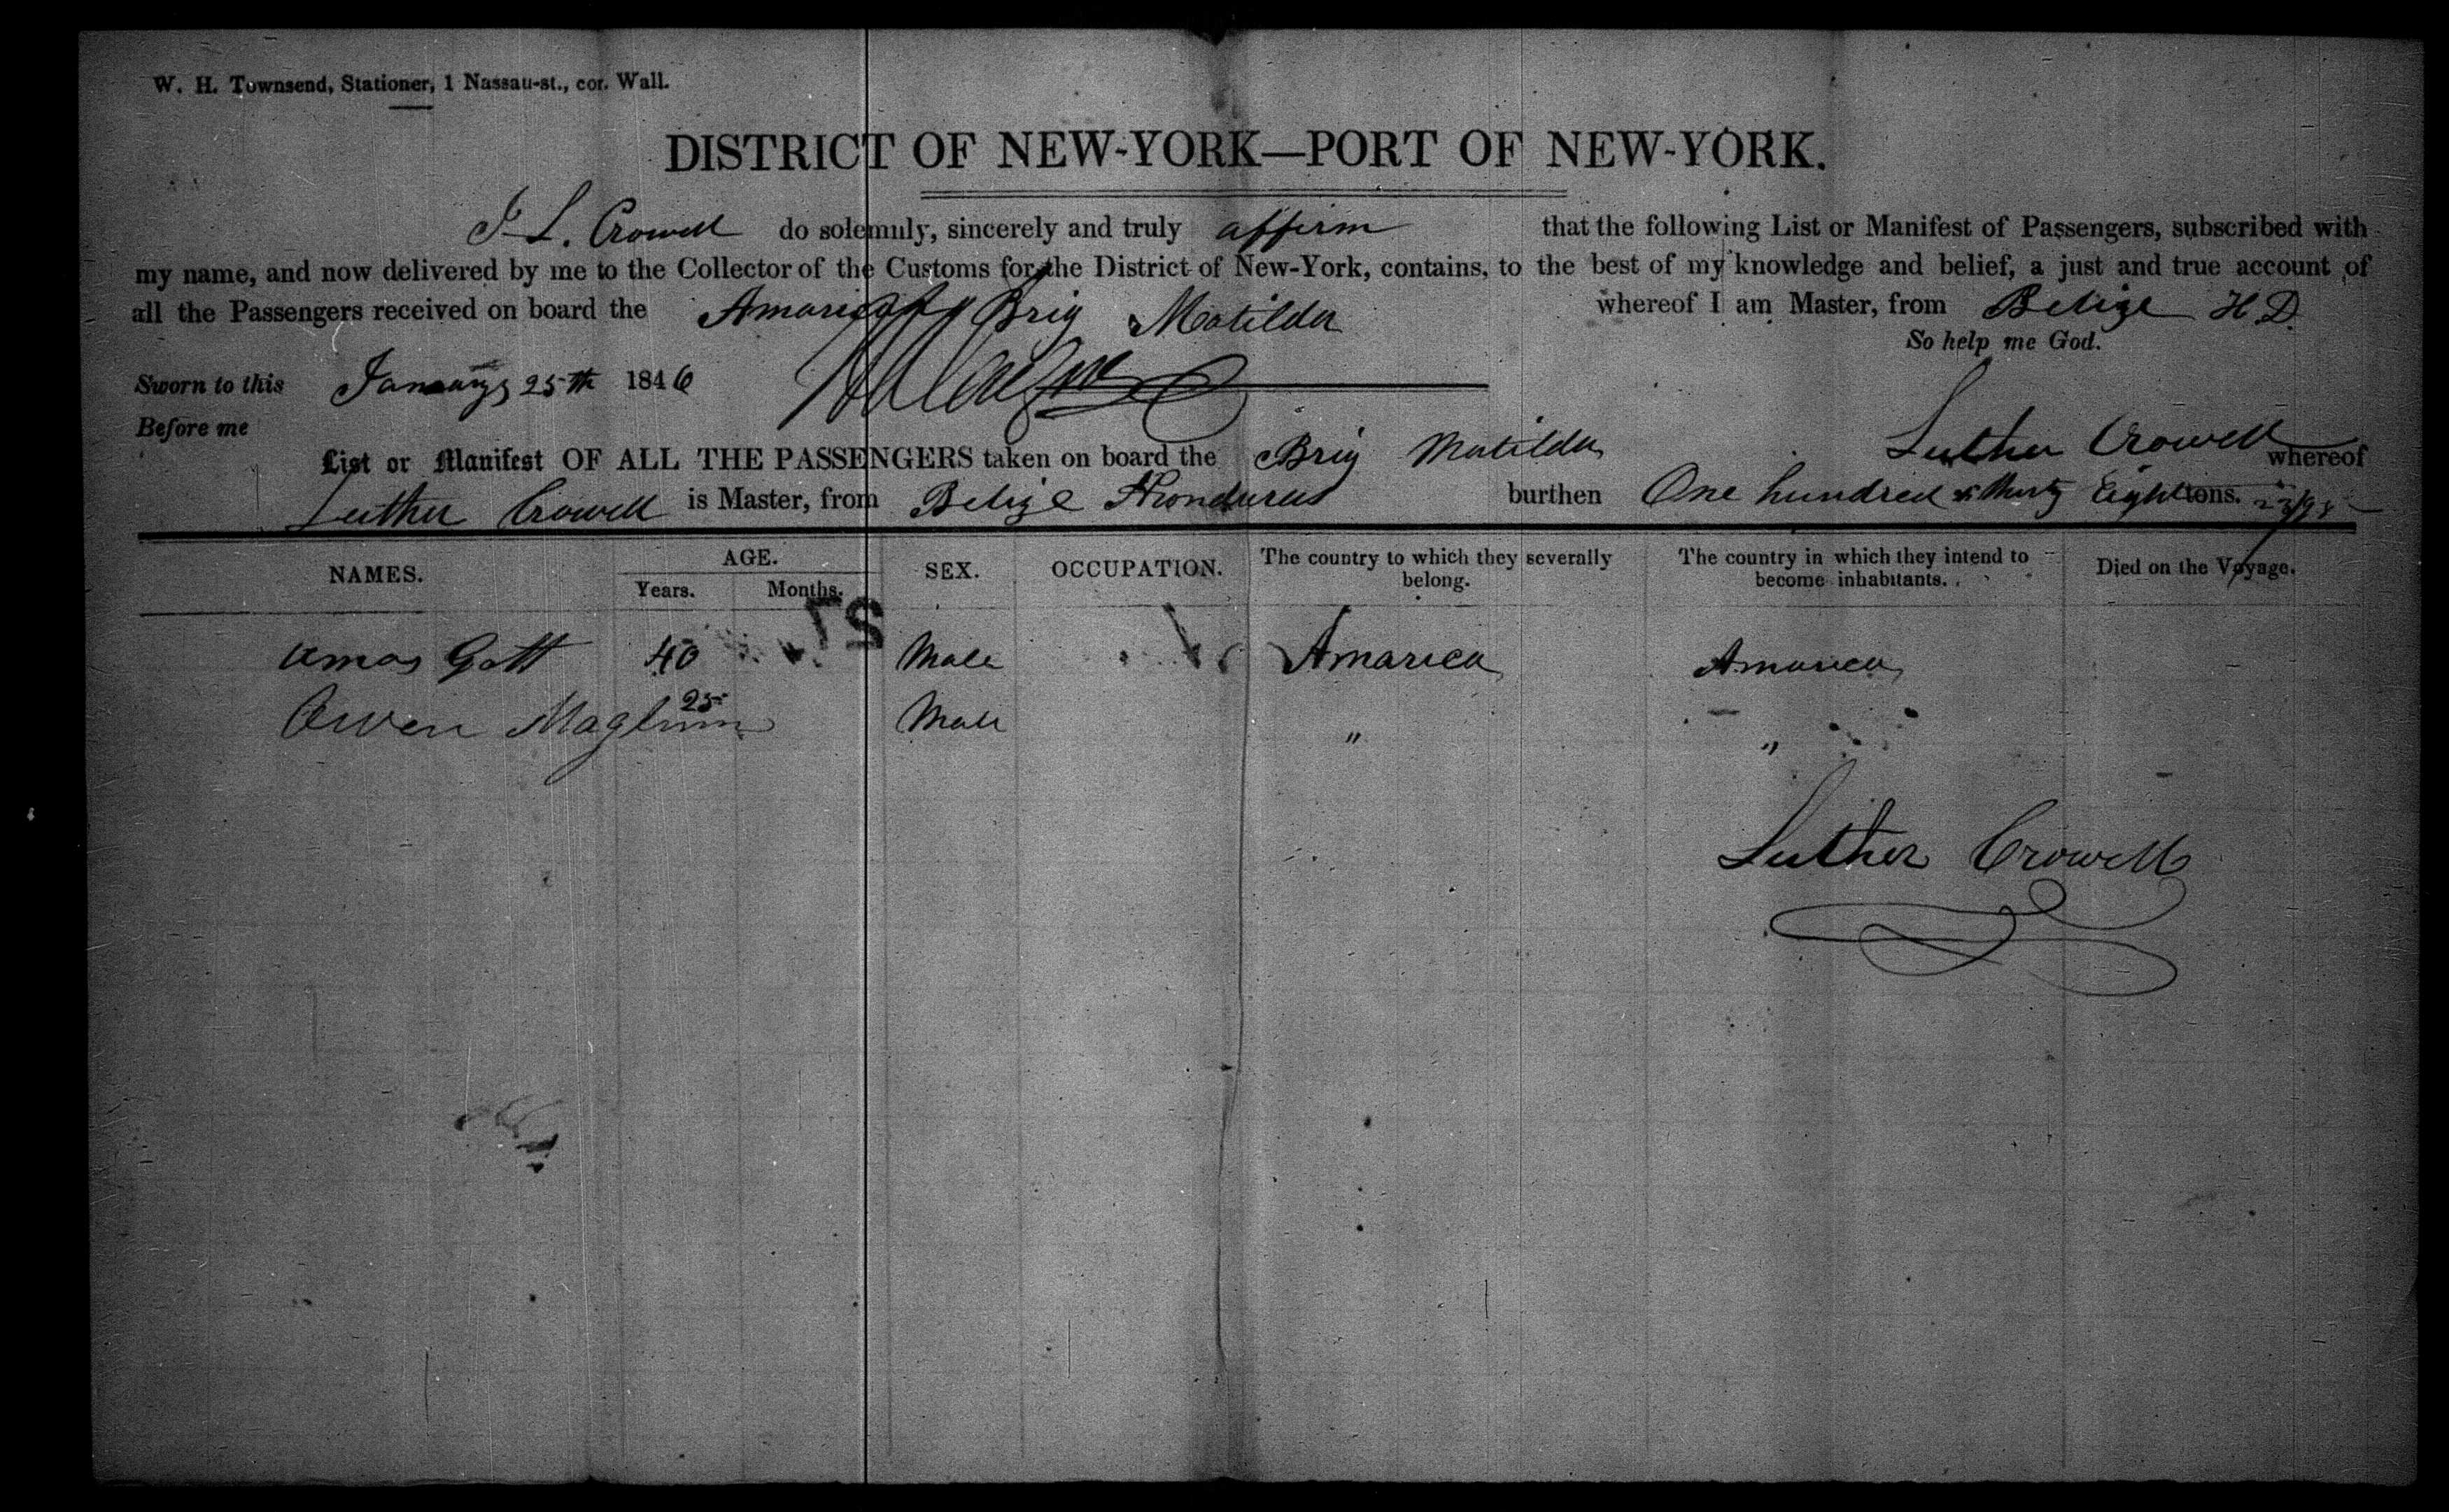 W. H. Townsend, Stationer, 1 Nassau-st., cor. Wall.
DISTRICT OF NEW-YORK—PORT OF NEW-YORK.
I L. Crowell do solemnly, sincerely and truly affirm that the following List or Manifest of Passengers, subscribed with
my name, and now delivered by me to the Collector of the Customs for the District of New-York, contains, to the best of my knowledge and belief, a just and true account of
all the Passengers received on board the Brig Matilda whereof I am Master, from Belize H.D.
So help me God.
Sworn to this January 25th 1846
Before me
Luther Crowell
List or Manifest OF ALL THE PASSENGERS taken on board the Brig Matilda whereof
Luther Crowell is Master, from Belize Hondurus burthen One hundred & thirty Eight tons. 23/95
NAMES. AGE. SEX. OCCUPATION. The country to which they severally belong. The country in which they intend to become inhabitants. Died on the Voyage.
Years. Months.
Amos Gott 40 Male Amarica Amarica
Owen 25 Male " "
Luther Crowell